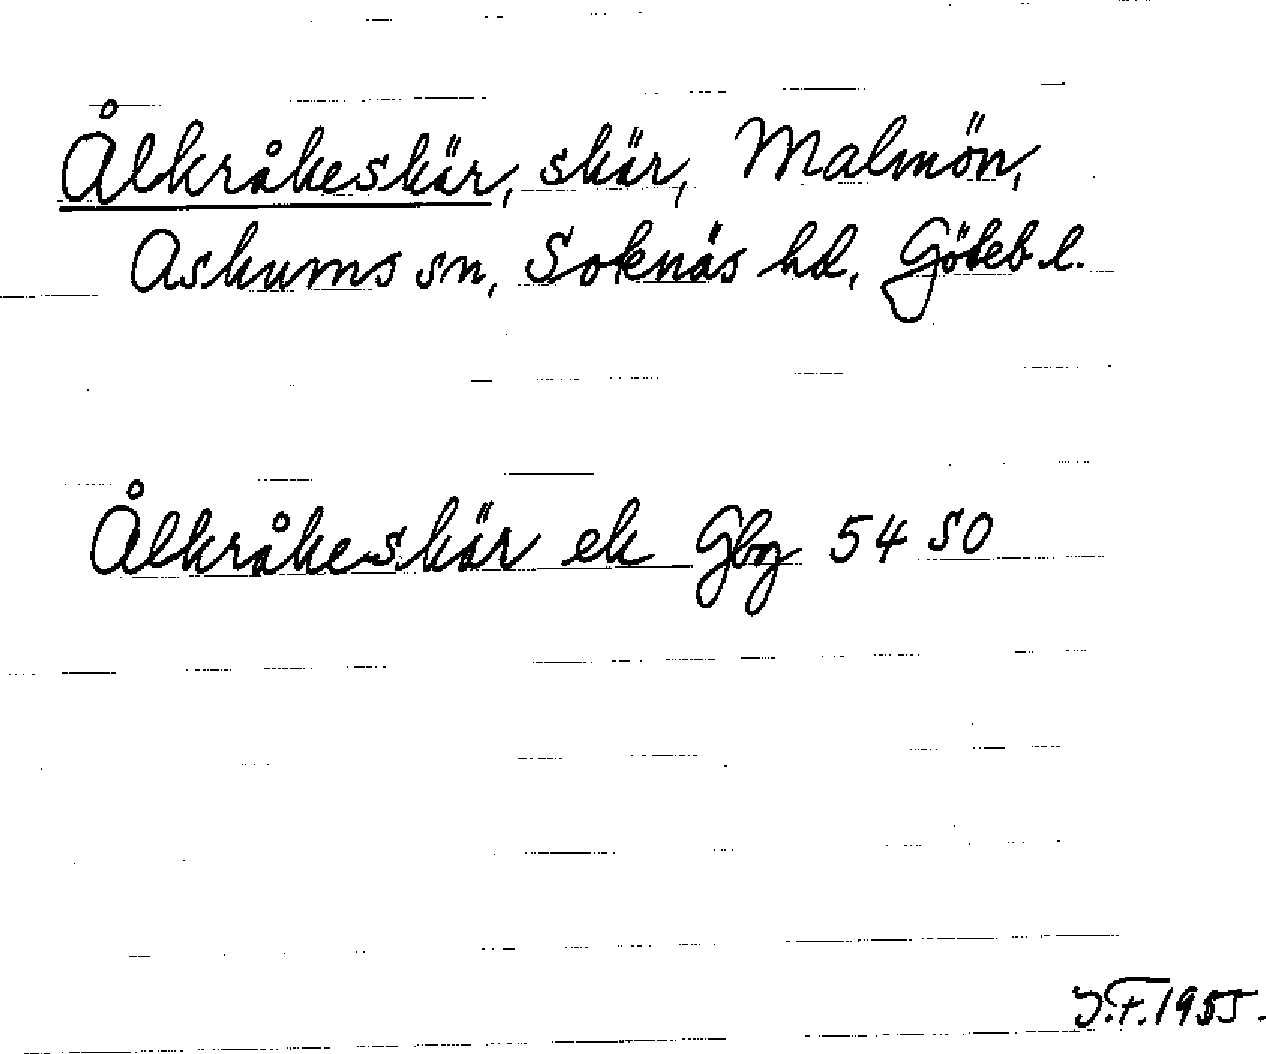 Ålkråkeskär, skär, Malmön,
Askums sn, Soknäs hd, Göteb. l.
Ålkråkeskär ek Gbg 54 SO
J.F. 1955.